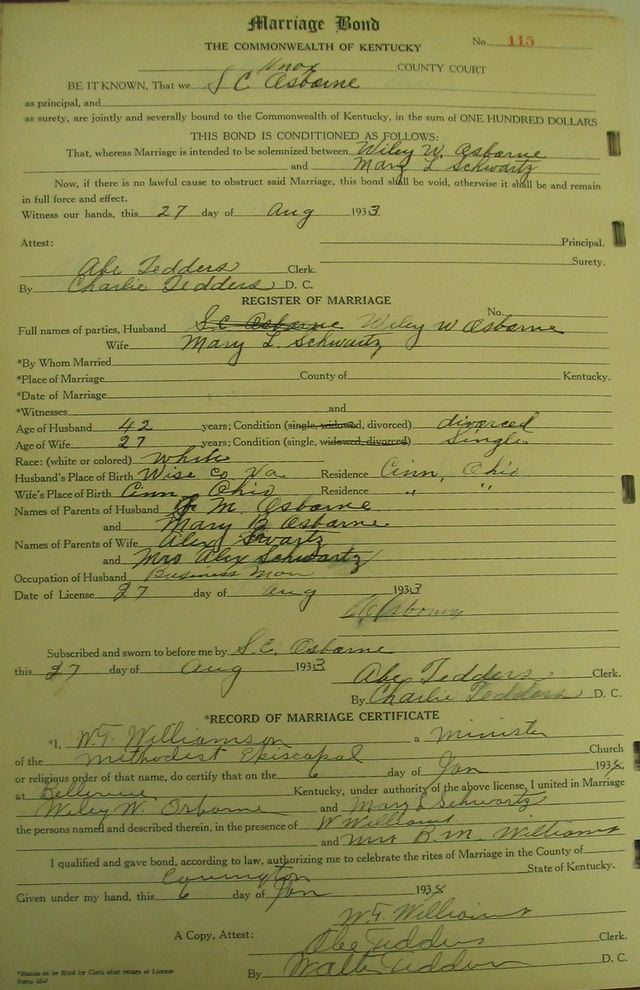 Marriage Bond
THE COMMONWEALTH OF KENTUCKY No. 115
Knox COUNTY COURT
BE IT KNOWN, That we S C Osborne
as principal, and
as surety, are jointly and severally bound to the Commonwealth of Kentucky, in the sum of ONE HUNDRED DOLLARS
THIS BOND IS CONDITIONED AS FOLLOWS:
That, whereas Marriage is intended to be solemnized between Wiley W. Osborne
and Mary L Schwartz
Now, if there is no lawful cause to obstruct said Marriage, this bond shall be void, otherwise it shall be and remain
in full force and effect.
Witness our hands, this 27 day of Aug 1933.
Attest: Principal.
Surety.
Abe Tedders Clerk.
By Charlie Tedders D. C.
REGISTER OF MARRIAGE
No.
Full names of parties, Husband S.C. Osborne Wiley W Osborne
Wife Mary L. Schwartz
*By Whom Married
*Place of Marriage County of Kentucky.
*Date of Marriage
*Witnesses and
Age of Husband 42 years; Condition (single, widowed, divorced) divorced
Age of Wife 27 years; Condition (single, widowed, divorced) Single
Race: (white or colored) White
Husband's Place of Birth Wise Co Va Residence Cinn, Ohio
Wife's Place of Birth Cinn, Ohio Residence " "
Names of Parents of Husband M. Osborne
and Mary B Osborne
Names of Parents of Wife Alex Swartz
and Mrs Alex Schwartz
Occupation of Husband Business Man
Date of License 27 day of Aug 1933
Osborne
Subscribed and sworn to before me by S.C. Osborne
this 27 day of Aug 1933
Abe Tedders Clerk.
By Charlie Tedders D. C.
*RECORD OF MARRIAGE CERTIFICATE
*I, W.T. Williamson a Minister
of the Methodist Episcopal Church
or religious order of that name, do certify that on the 6 day of Jan 1934
at Bellevue Kentucky, under authority of the above license, I united in Marriage
Wiley W. Osborne and Mary L Schwartz
the persons named and described therein, in the presence of W Williams
and Mrs B. M. Williams
I qualified and gave bond, according to law, authorizing me to celebrate the rites of Marriage in the County of
Covington State of Kentucky.
Given under my hand, this 6 day of Jan 1934
W.T. Williams
A Copy, Attest: Abe Tedders Clerk.
By Walter Tedders D. C.
*Blanks to be filled by Clerk after return of License